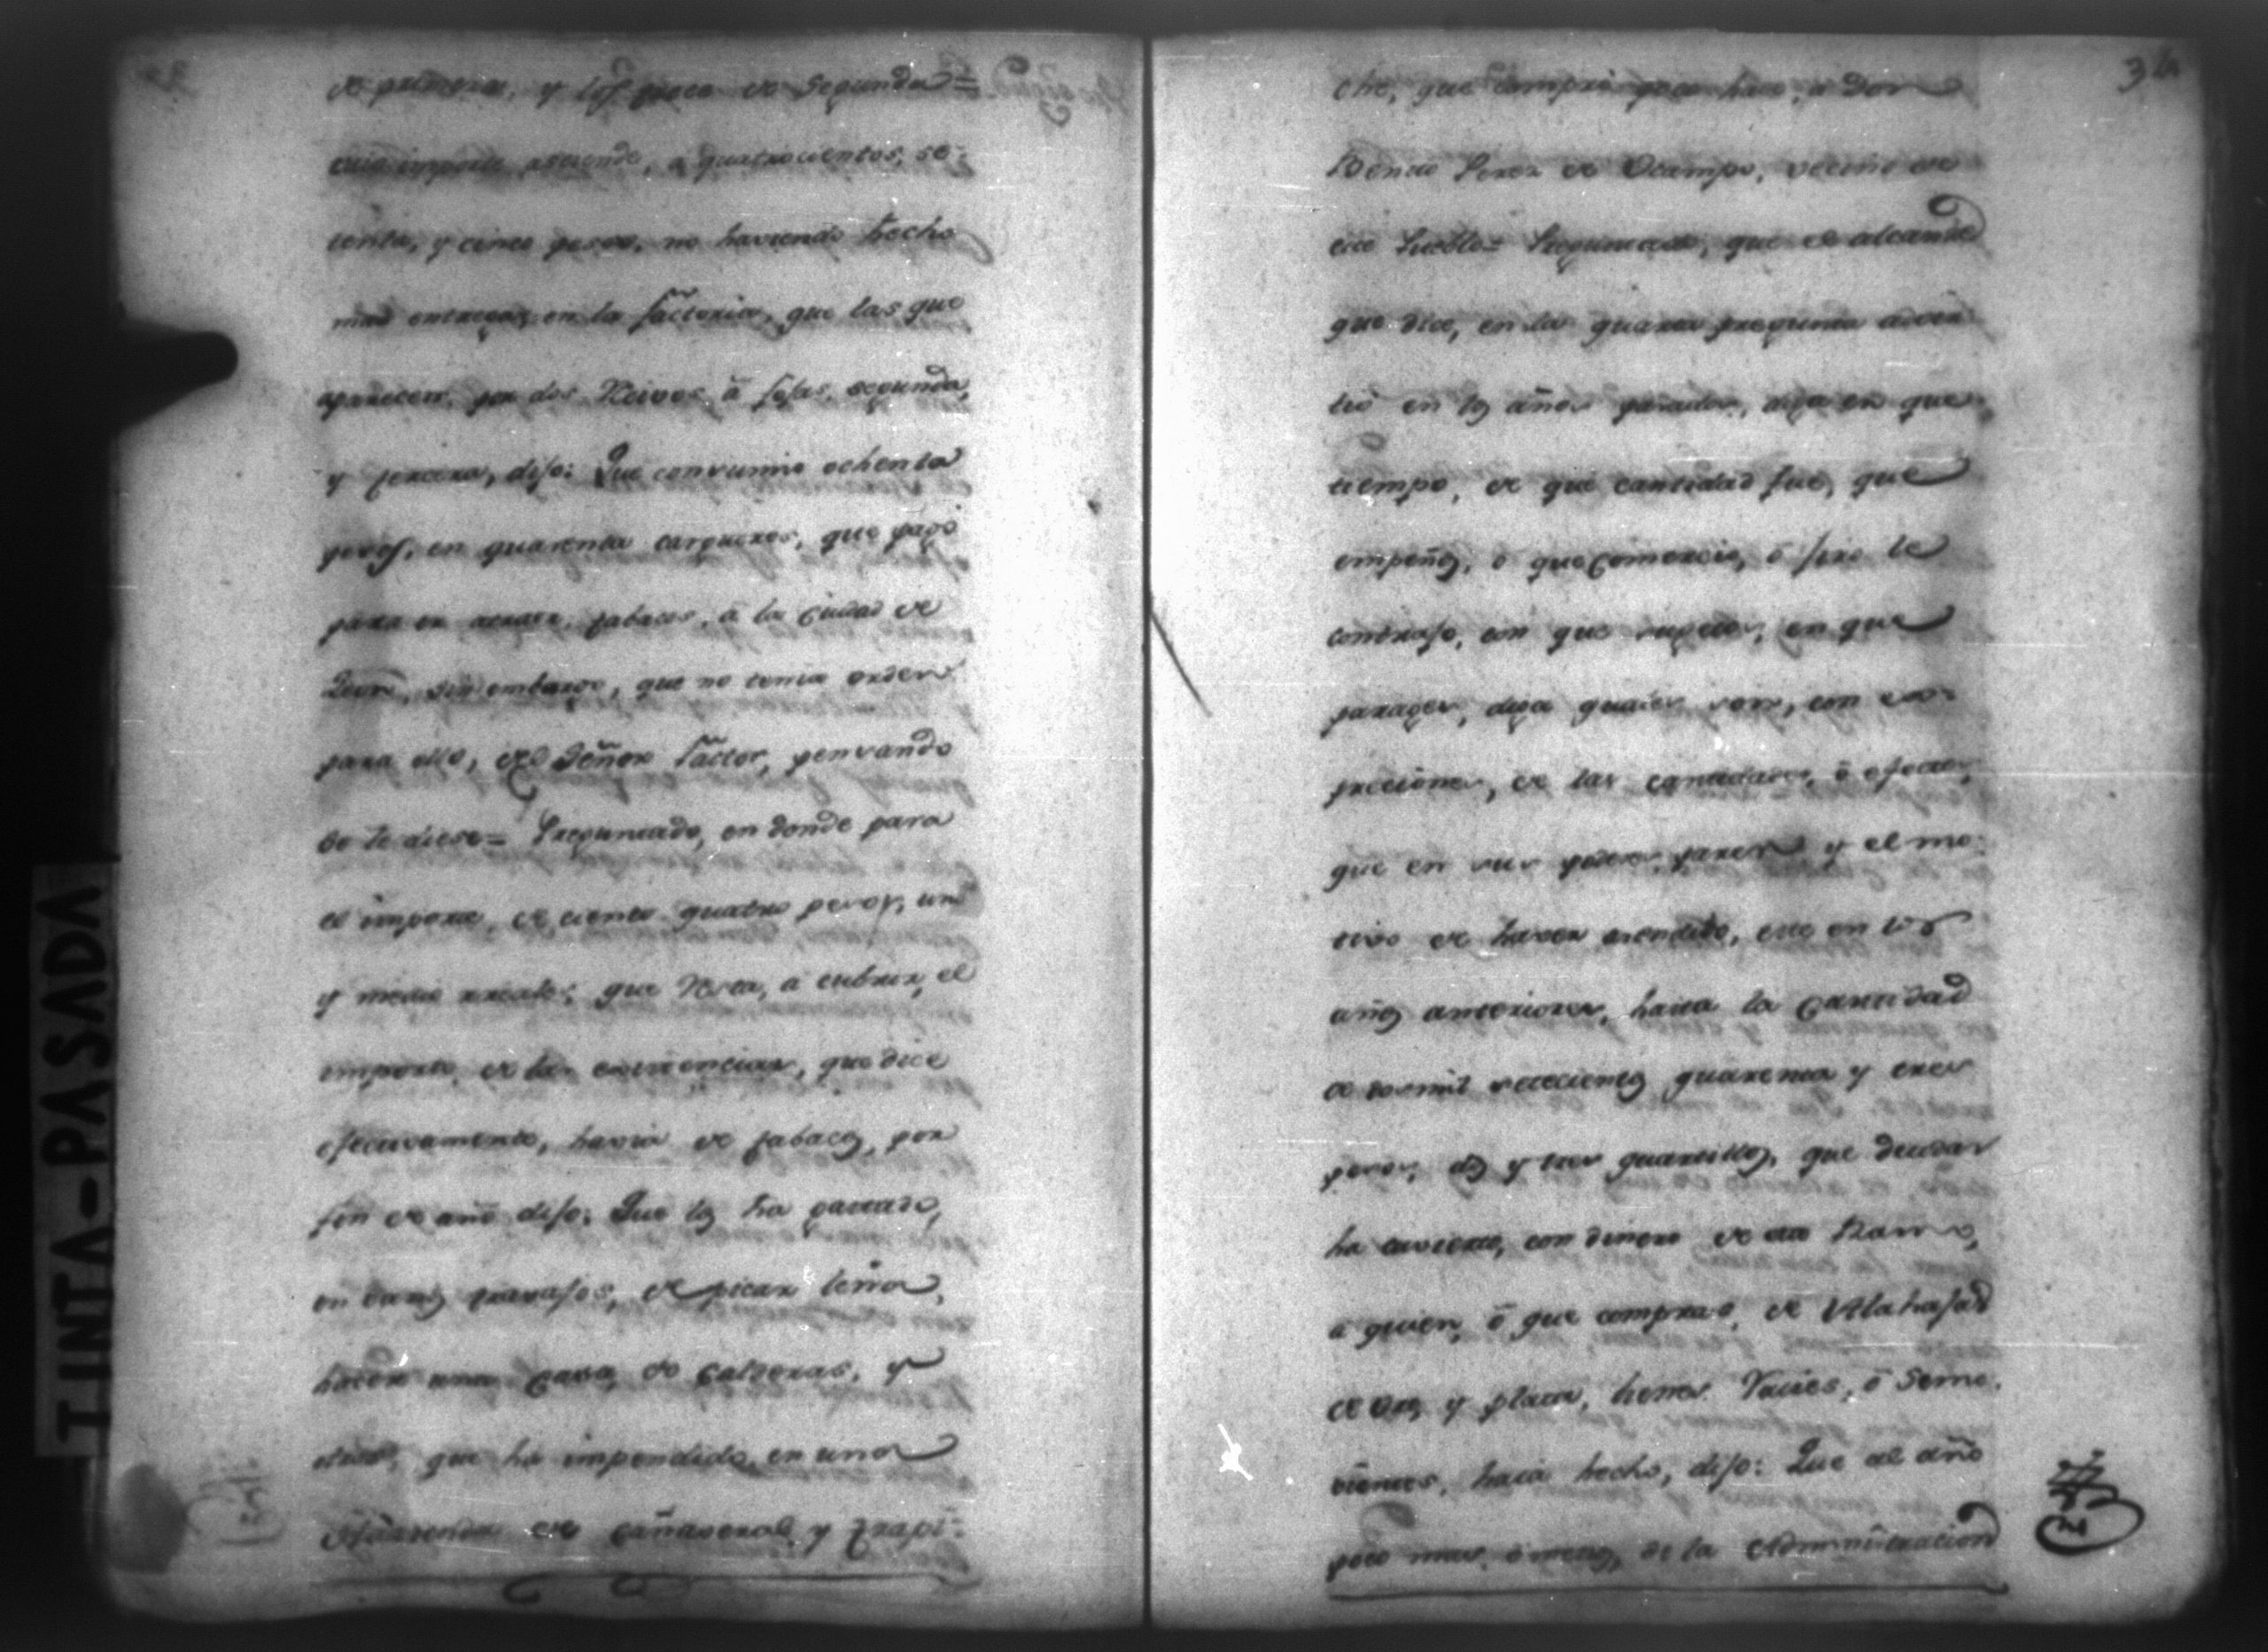 de primera, y los pocos de segunda=
cuio importe asciende, a quatrocientos, se-
tenta, y cinco pesos, no haviendo hecho
mas entregas en la factoria, que las que
aparecen, por dos Reivos â foxas, segunda,
y tercera, dijo: Que consumio ochenta
pesos, en quarenta cargueros, que pagó
para traer, tabacos, â la Ciudad de
sin embargo, que no tenia orden
para ello, del Señor factor, pensando
se le diese= Preguntado, en donde para
el importe, de ciento quatro pesos, un
y medio rreales; que Resta, a cubrir, el
importe, de las existencias, que dice
efectivamente, havia de tabacos, por
fin de año dijo: Que los ha gastado,
en varios travajos, de picar leña,
hacer una Casa, de Calderas, y
otros, que ha impendido, en una
Hazienda de Cañaveral, y Trapi-
che, que compró poco hace, a Don
Perez de Ocampo, vecino de
este Pueblo= Preguntado, que el alcance
que dice, en la quarta pregunta advir-
tió en los años pasados, diga en que
tiempo, de que cantidad fue, que
empeños, o que Comercio, ô Jiro le
contrajo, con que sugetos, en que
parages, diga quales son, con ex-
preciones, de las cantidades, ô efectos,
que en sus poderes paren y el mo-
tivo de haver asendido, este en los
años anteriores, hasta la Cantidad
de dos mil setecientos quarenta y tres
pesos, dos y tres quartillos, que deudas
ha cuvierto, con dinero de este Ramo,
a quien, ô que compras, de Alahajas
de Oro, y plata, vienes Raices, ô Semo-
vientes, hacia hecho, dijo: Que al año
poco mas, ô menos, de la Administracion
TINTA-PASADA